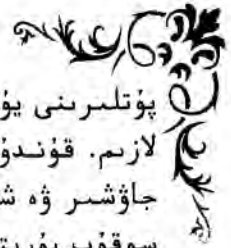 پۇتلىرىنى يۇ
لازىم. قۇندۇ
جاۋشىر ۋە ش